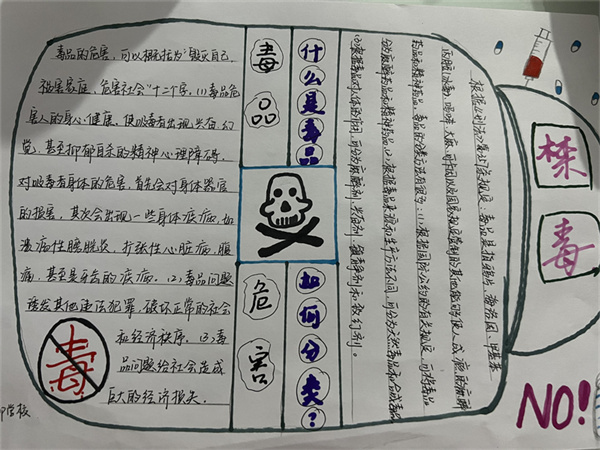 毒品的危害,可以概括为“毁灭自己,
祸害家庭,危害社会”十二个字。(1)毒品危
害人的身心健康,使吸毒者出现兴奋、幻
觉,甚至抑郁自杀的精神心理障碍。
对吸毒者身体的危害,首先会对身体器官
的损害,其次会出现一些身体疾病,如
溃疡性膀胱炎、扩张性心脏病、腹
痛、甚至是牙齿的疾病。(2)毒品问题
诱发其他违法犯罪,破坏正常的社会
和经济秩序。(3)毒
品问题给社会造成
巨大的经济损失。
毒
毒品
危害
什么是毒品
如何分类?
根据《刑法》第357条规定,毒品是指鸦片、海洛因、甲基苯
丙胺(冰毒)、吗啡、大麻、可卡因以及国家规定管制的其他能够使人成瘾的麻醉
药品和精神药品。毒品的分类方法有很多:(1)根据国际公约的有关规定,可将毒品
分为麻醉药品和精神药品。(2)根据毒品来源和生产方法不同,可分为天然毒品和合成毒品。
(3)根据毒品对人体的作用,可分为麻醉剂、兴奋剂、镇静剂和致幻剂。
禁
毒
NO!
学校